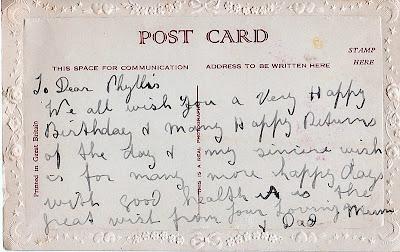 POST CARD
STAMP
HERE
THIS SPACE FOR COMMUNICATION
ADDRESS TO BE WRITTEN HERE
To Dear Phyllis
We all wish you a Very Happy
Birthday & Many Happy Returns
of the day & my sincere wish
is for many more happy days
with good health is is the
great wist from your Loving
& Dad Mum
Printed in Great Britain
THIS IS A REAL PHOTOGRAPH